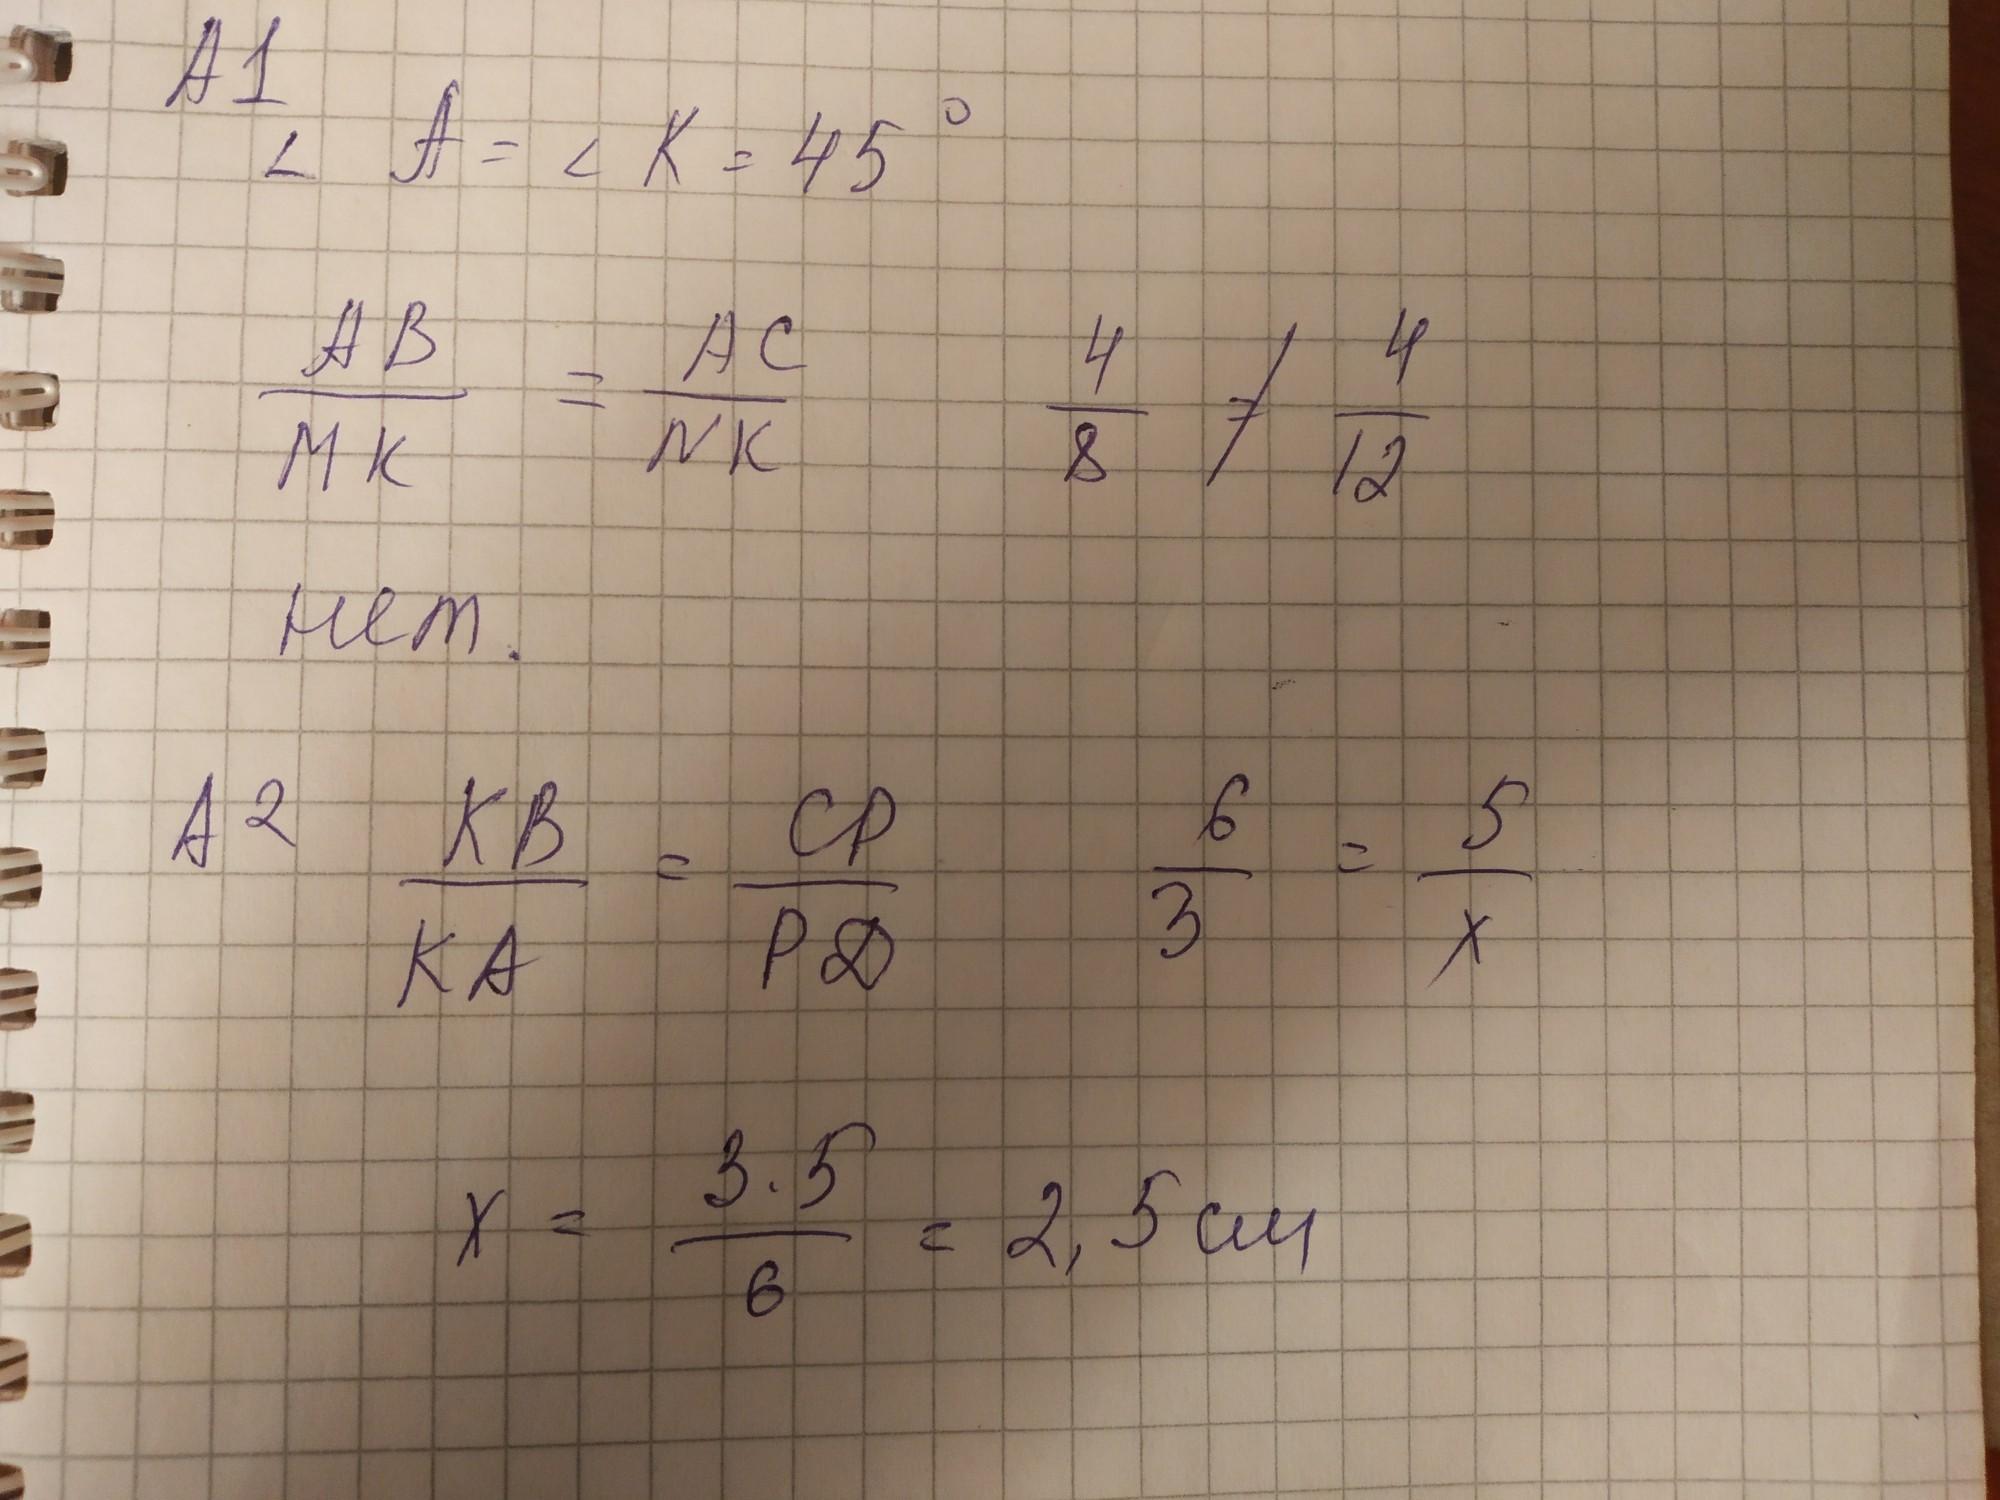 A1
∠ A = ∠ K = 45°
AB/MK = AC/NK 4/8 ≠ 4/12
нет.
A2 KB/KA = CP/PD 6/3 = 5/x
x = 3·5/6 = 2,5 см